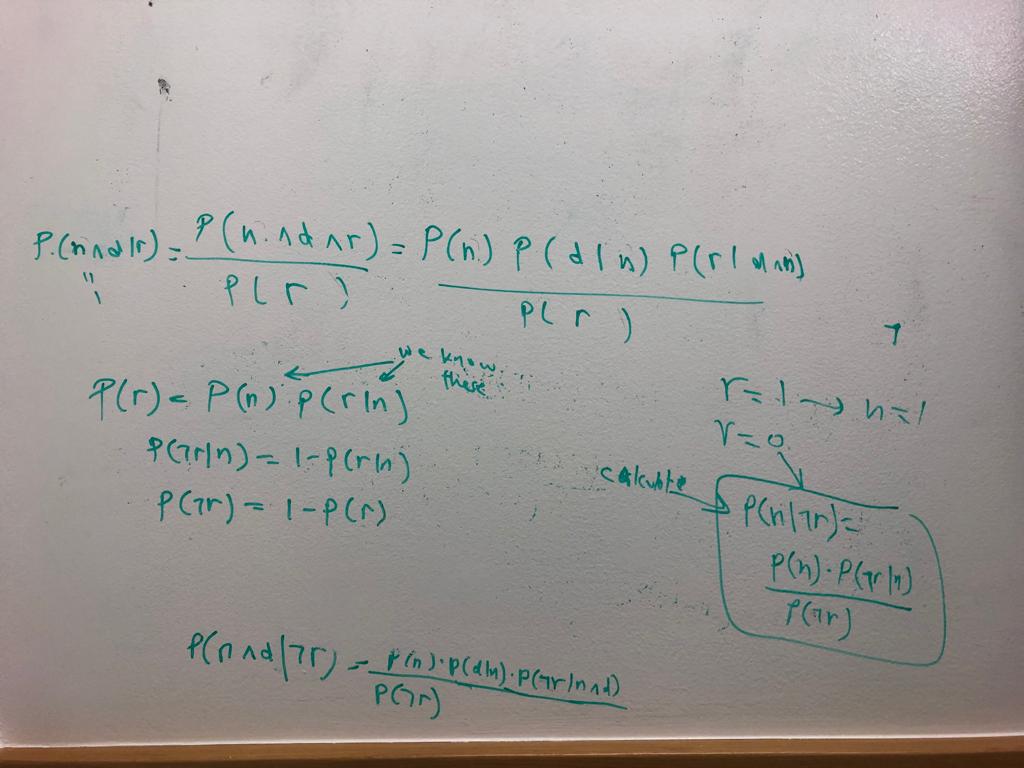 P(n∧d|r) = P(n∧d∧r) / P(r) = P(n) P(d|n) P(r|d∧n) / P(r)
"
we know
these
P(r) = P(n) P(r|n)
P(¬r|n) = 1-P(r|n)
P(¬r) = 1-P(r)
r=1 → n=1
r=0
calculate
P(n|¬r) =
P(n)·P(¬r|n)
P(¬r)
P(n∧d|¬r) = P(n)·P(d|n)·P(¬r|n∧d)
P(¬r)